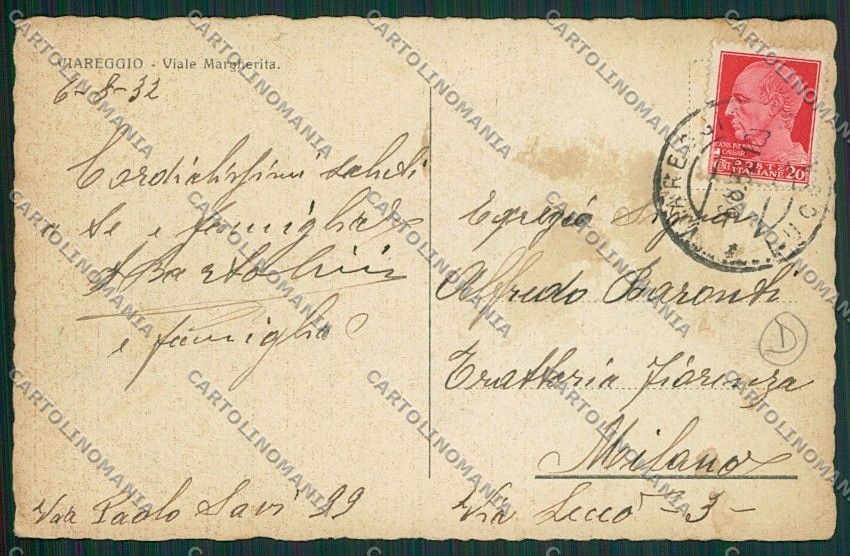 VIAREGGIO - Viale Margherita.
6-8-32
Cordialissimi saluti
a Se e famiglia
A Bartolini
e famiglia
Via Paolo Savi 99
POSTE
ITALIANE
CENT 20
Egregio Signor
Alfredo Baronti
Trattoria Fiorenza
Milano
Via Lecco - 3 -
D
CARTOLINOMANIA